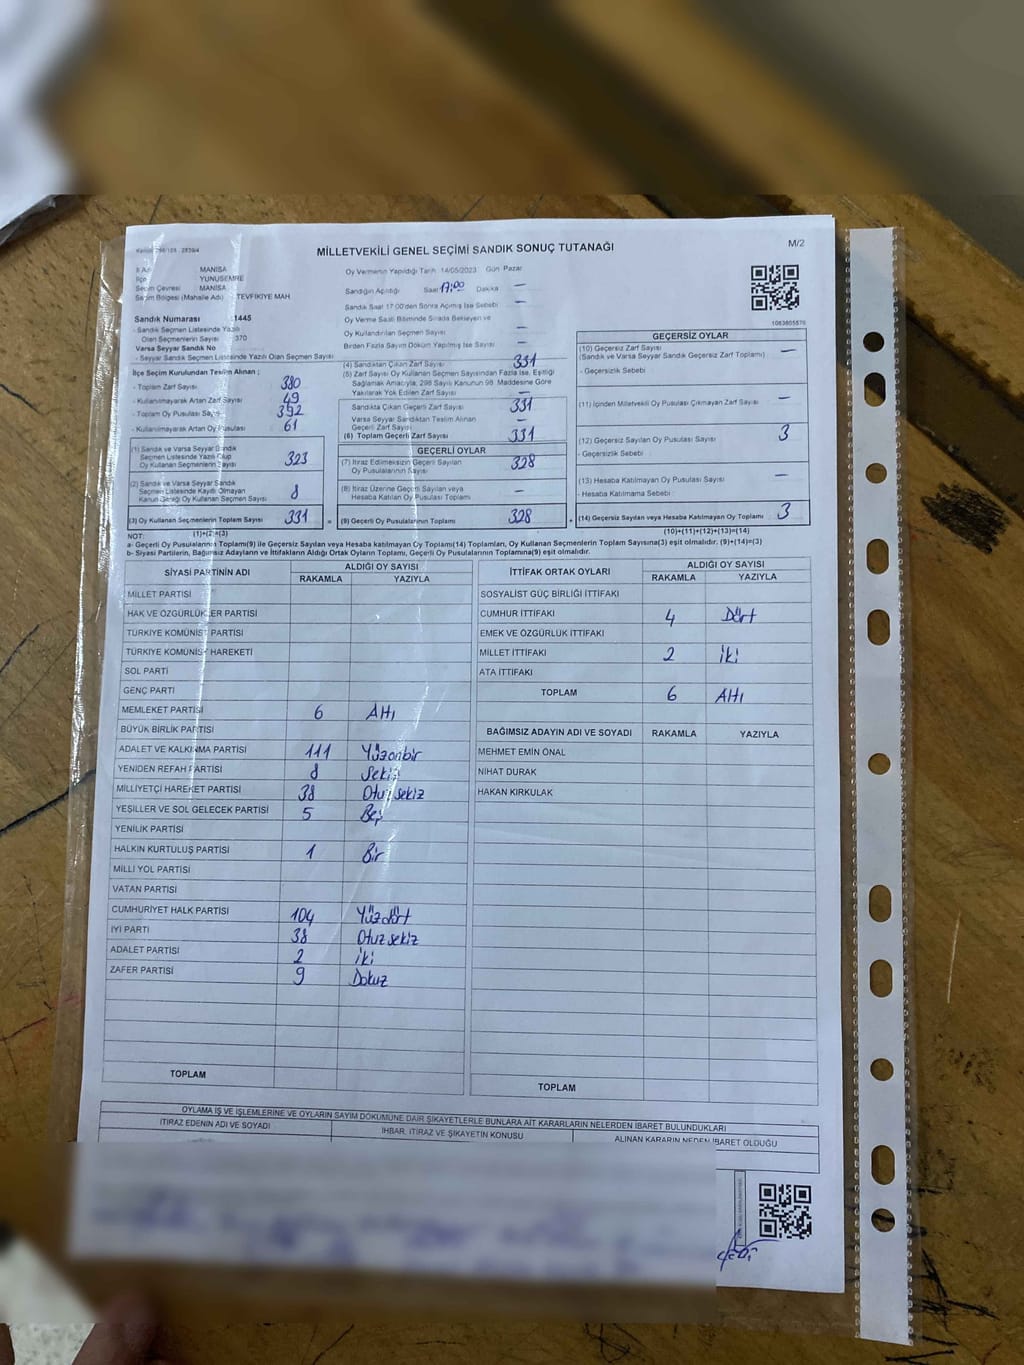 MİLLETVEKİLİ GENEL SEÇİMİ SANDIK SONUÇ TUTANAĞI
M/2
İl Adı MANİSA
İlçe YUNUSEMRE
Seçim Çevresi MANİSA
Seçim Bölgesi (Mahalle Adı) TEVFİKİYE MAH
Oy Vermenin Yapıldığı Tarih 14/05/2023 Gün Pazar
Sandığın Açıldığı Saat 17:00 Dakika —
Sandık Saat 17:00'den Sonra Açılmış İse Sebebi —
Oy Verme Saati Bitiminde Sırada Bekleyen ve
Oy Kullandırılan Seçmen Sayısı —
Birden Fazla Sayım Döküm Yapılmış İse Sayısı —
1083805576
Sandık Numarası :1445
- Sandık Seçmen Listesinde Yazılı
Olan Seçmenlerin Sayısı :370
Varsa Seyyar Sandık No
- Seyyar Sandık Seçmen Listesinde Yazılı Olan Seçmen Sayısı
İlçe Seçim Kurulundan Teslim Alınan ;
- Toplam Zarf Sayısı 380
- Kullanılmayarak Artan Zarf Sayısı 49
- Toplam Oy Pusulası Sayısı 392
- Kullanılmayarak Artan Oy Pusulası 61
(1) Sandık ve Varsa Seyyar Sandık
Seçmen Listesinde Yazılı Olup
Oy Kullanan Seçmenlerin Sayısı 323
(2) Sandık ve Varsa Seyyar Sandık
Seçmen Listesinde Kayıtlı Olmayan
Kanun Gereği Oy Kullanan Seçmen Sayısı 8
(3) Oy Kullanan Seçmenlerin Toplam Sayısı 331 =
(1)+(2)=(3)
(4) Sandıktan Çıkan Zarf Sayısı 331
(5) Zarf Sayısı Oy Kullanan Seçmen Sayısından Fazla İse, Eşitliği
Sağlamak Amacıyla, 298 Sayılı Kanunun 98. Maddesine Göre
Yakılarak Yok Edilen Zarf Sayısı —
Sandıkta Çıkan Geçerli Zarf Sayısı 331
Varsa Seyyar Sandıktan Teslim Alınan
Geçerli Zarf Sayısı —
(6) Toplam Geçerli Zarf Sayısı 331
GEÇERLİ OYLAR
(7) İtiraz Edilmeksizin Geçerli Sayılan
Oy Pusulalarının Sayısı 328
(8) İtiraz Üzerine Geçerli Sayılan veya
Hesaba Katılan Oy Pusulası Toplamı —
(9) Geçerli Oy Pusulalarının Toplamı 328 +
GEÇERSİZ OYLAR
(10) Geçersiz Zarf Sayısı
(Sandık ve Varsa Seyyar Sandık Geçersiz Zarf Toplamı) —
- Geçersizlik Sebebi
(11) İçinden Milletvekili Oy Pusulası Çıkmayan Zarf Sayısı —
(12) Geçersiz Sayılan Oy Pusulası Sayısı 3
- Geçersizlik Sebebi
(13) Hesaba Katılmayan Oy Pusulası Sayısı —
- Hesaba Katılmama Sebebi
(14) Geçersiz Sayılan veya Hesaba Katılmayan Oy Toplamı 3
(10)+(11)+(12)+(13)=(14)
NOT:
a- Geçerli Oy Pusulalarının Toplamı(9) ile Geçersiz Sayılan veya Hesaba katılmayan Oy Toplamı(14) Toplamları, Oy Kullanan Seçmenlerin Toplam Sayısına(3) eşit olmalıdır. (9)+(14)=(3)
b- Siyasi Partilerin, Bağımsız Adayların ve İttifakların Aldığı Ortak Oyların Toplamı, Geçerli Oy Pusulalarının Toplamına(9) eşit olmalıdır.
SİYASİ PARTİNİN ADI ALDIĞI OY SAYISI
RAKAMLA YAZIYLA
MİLLET PARTİSİ
HAK VE ÖZGÜRLÜKLER PARTİSİ
TÜRKİYE KOMÜNİST PARTİSİ
TÜRKİYE KOMÜNİST HAREKETİ
SOL PARTİ
GENÇ PARTİ
MEMLEKET PARTİSİ 6 Altı
BÜYÜK BİRLİK PARTİSİ
ADALET VE KALKINMA PARTİSİ 111 Yüzonbir
YENİDEN REFAH PARTİSİ 8 Sekiz
MİLLİYETÇİ HAREKET PARTİSİ 38 Otuz sekiz
YEŞİLLER VE SOL GELECEK PARTİSİ 5 Beş
YENİLİK PARTİSİ
HALKIN KURTULUŞ PARTİSİ 1 Bir
MİLLİ YOL PARTİSİ
VATAN PARTİSİ
CUMHURİYET HALK PARTİSİ 104 Yüzdört
İYİ PARTİ 38 Otuz sekiz
ADALET PARTİSİ 2 iki
ZAFER PARTİSİ 9 Dokuz
TOPLAM
İTTİFAK ORTAK OYLARI ALDIĞI OY SAYISI
RAKAMLA YAZIYLA
SOSYALİST GÜÇ BİRLİĞİ İTTİFAKI
CUMHUR İTTİFAKI 4 Dört
EMEK VE ÖZGÜRLÜK İTTİFAKI
MİLLET İTTİFAKI 2 iki
ATA İTTİFAKI
TOPLAM 6 Altı
BAĞIMSIZ ADAYIN ADI VE SOYADI RAKAMLA YAZIYLA
MEHMET EMİN ÖNAL
NİHAT DURAK
HAKAN KIRKULAK
TOPLAM
OYLAMA İŞ VE İŞLEMLERİNE VE OYLARIN SAYIM DÖKÜMÜNE DAİR ŞİKAYETLERLE BUNLARA AİT KARARLARIN NELERDEN İBARET BULUNDUKLARI
İTİRAZ EDENİN ADI VE SOYADI İHBAR, İTİRAZ VE ŞİKAYETİN KONUSU ALINAN KARARIN NEDEN İBARET OLDUĞU